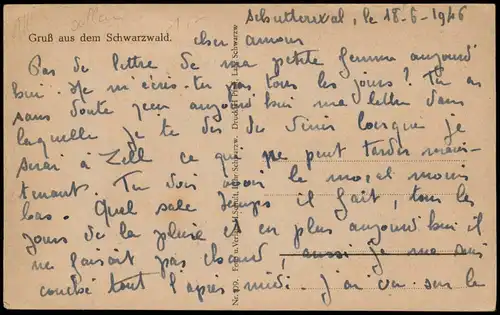 Schutterwal, le 18-6-1946
Gruß aus dem Schwarzwald.
cher amour
Pas de lettre de ma petite femme aujourd'
hui. Ne m'écris-tu pas tous les jours? Tu as
sans doute reçu aujourd'hui ma lettre dans
laquelle je te dis de venir lorsque je
serai à Zell ce qui ne peut tarder main-
tenant. Tu dois avoir le moral moins
bas. Quel sale temps il fait, tous les
jours de la pluie et en plus aujourd'hui il
ne faisait pas chaud, aussi je me suis
couché tout l'après midi. J'ai vu sur le